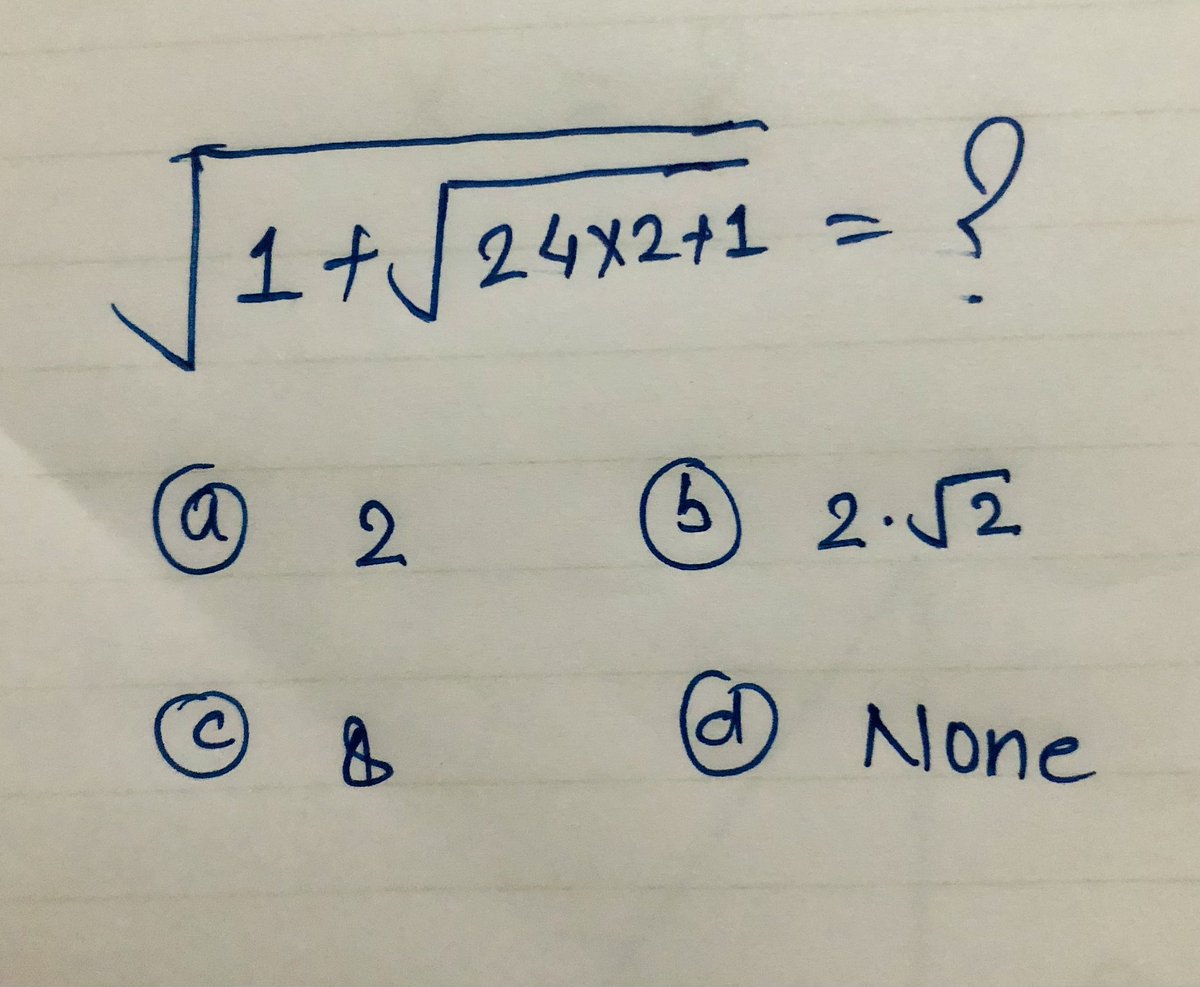 √(1+√(24×2+1)) = ?
ⓐ 2 ⓑ 2·√2
ⓒ 8 ⓓ None